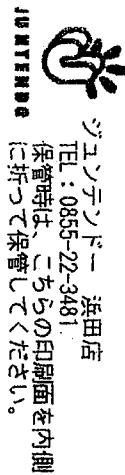 JUNTENDO
ジュンテンドー　浜田店
TEL：0855-22-3481
保管時は、こちらの印刷面を内側
に折って保管してください。